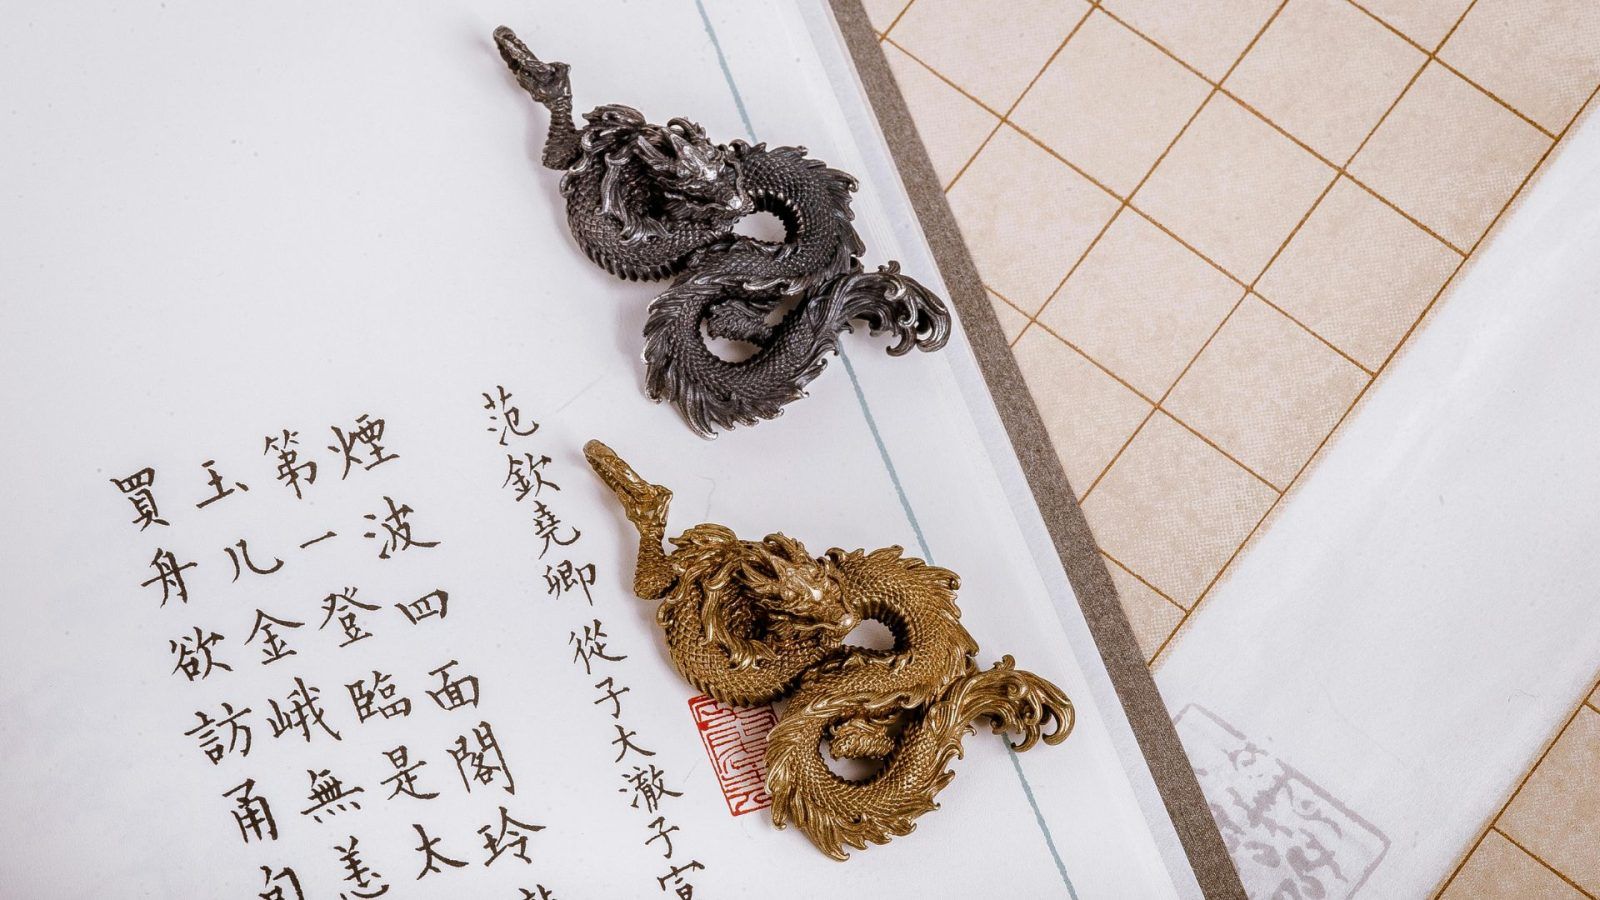 范欽堯卿 從子大澈子宣
煙波四面閣玲
第一登臨是太
玉几金峨無恙
買舟欲訪甬句